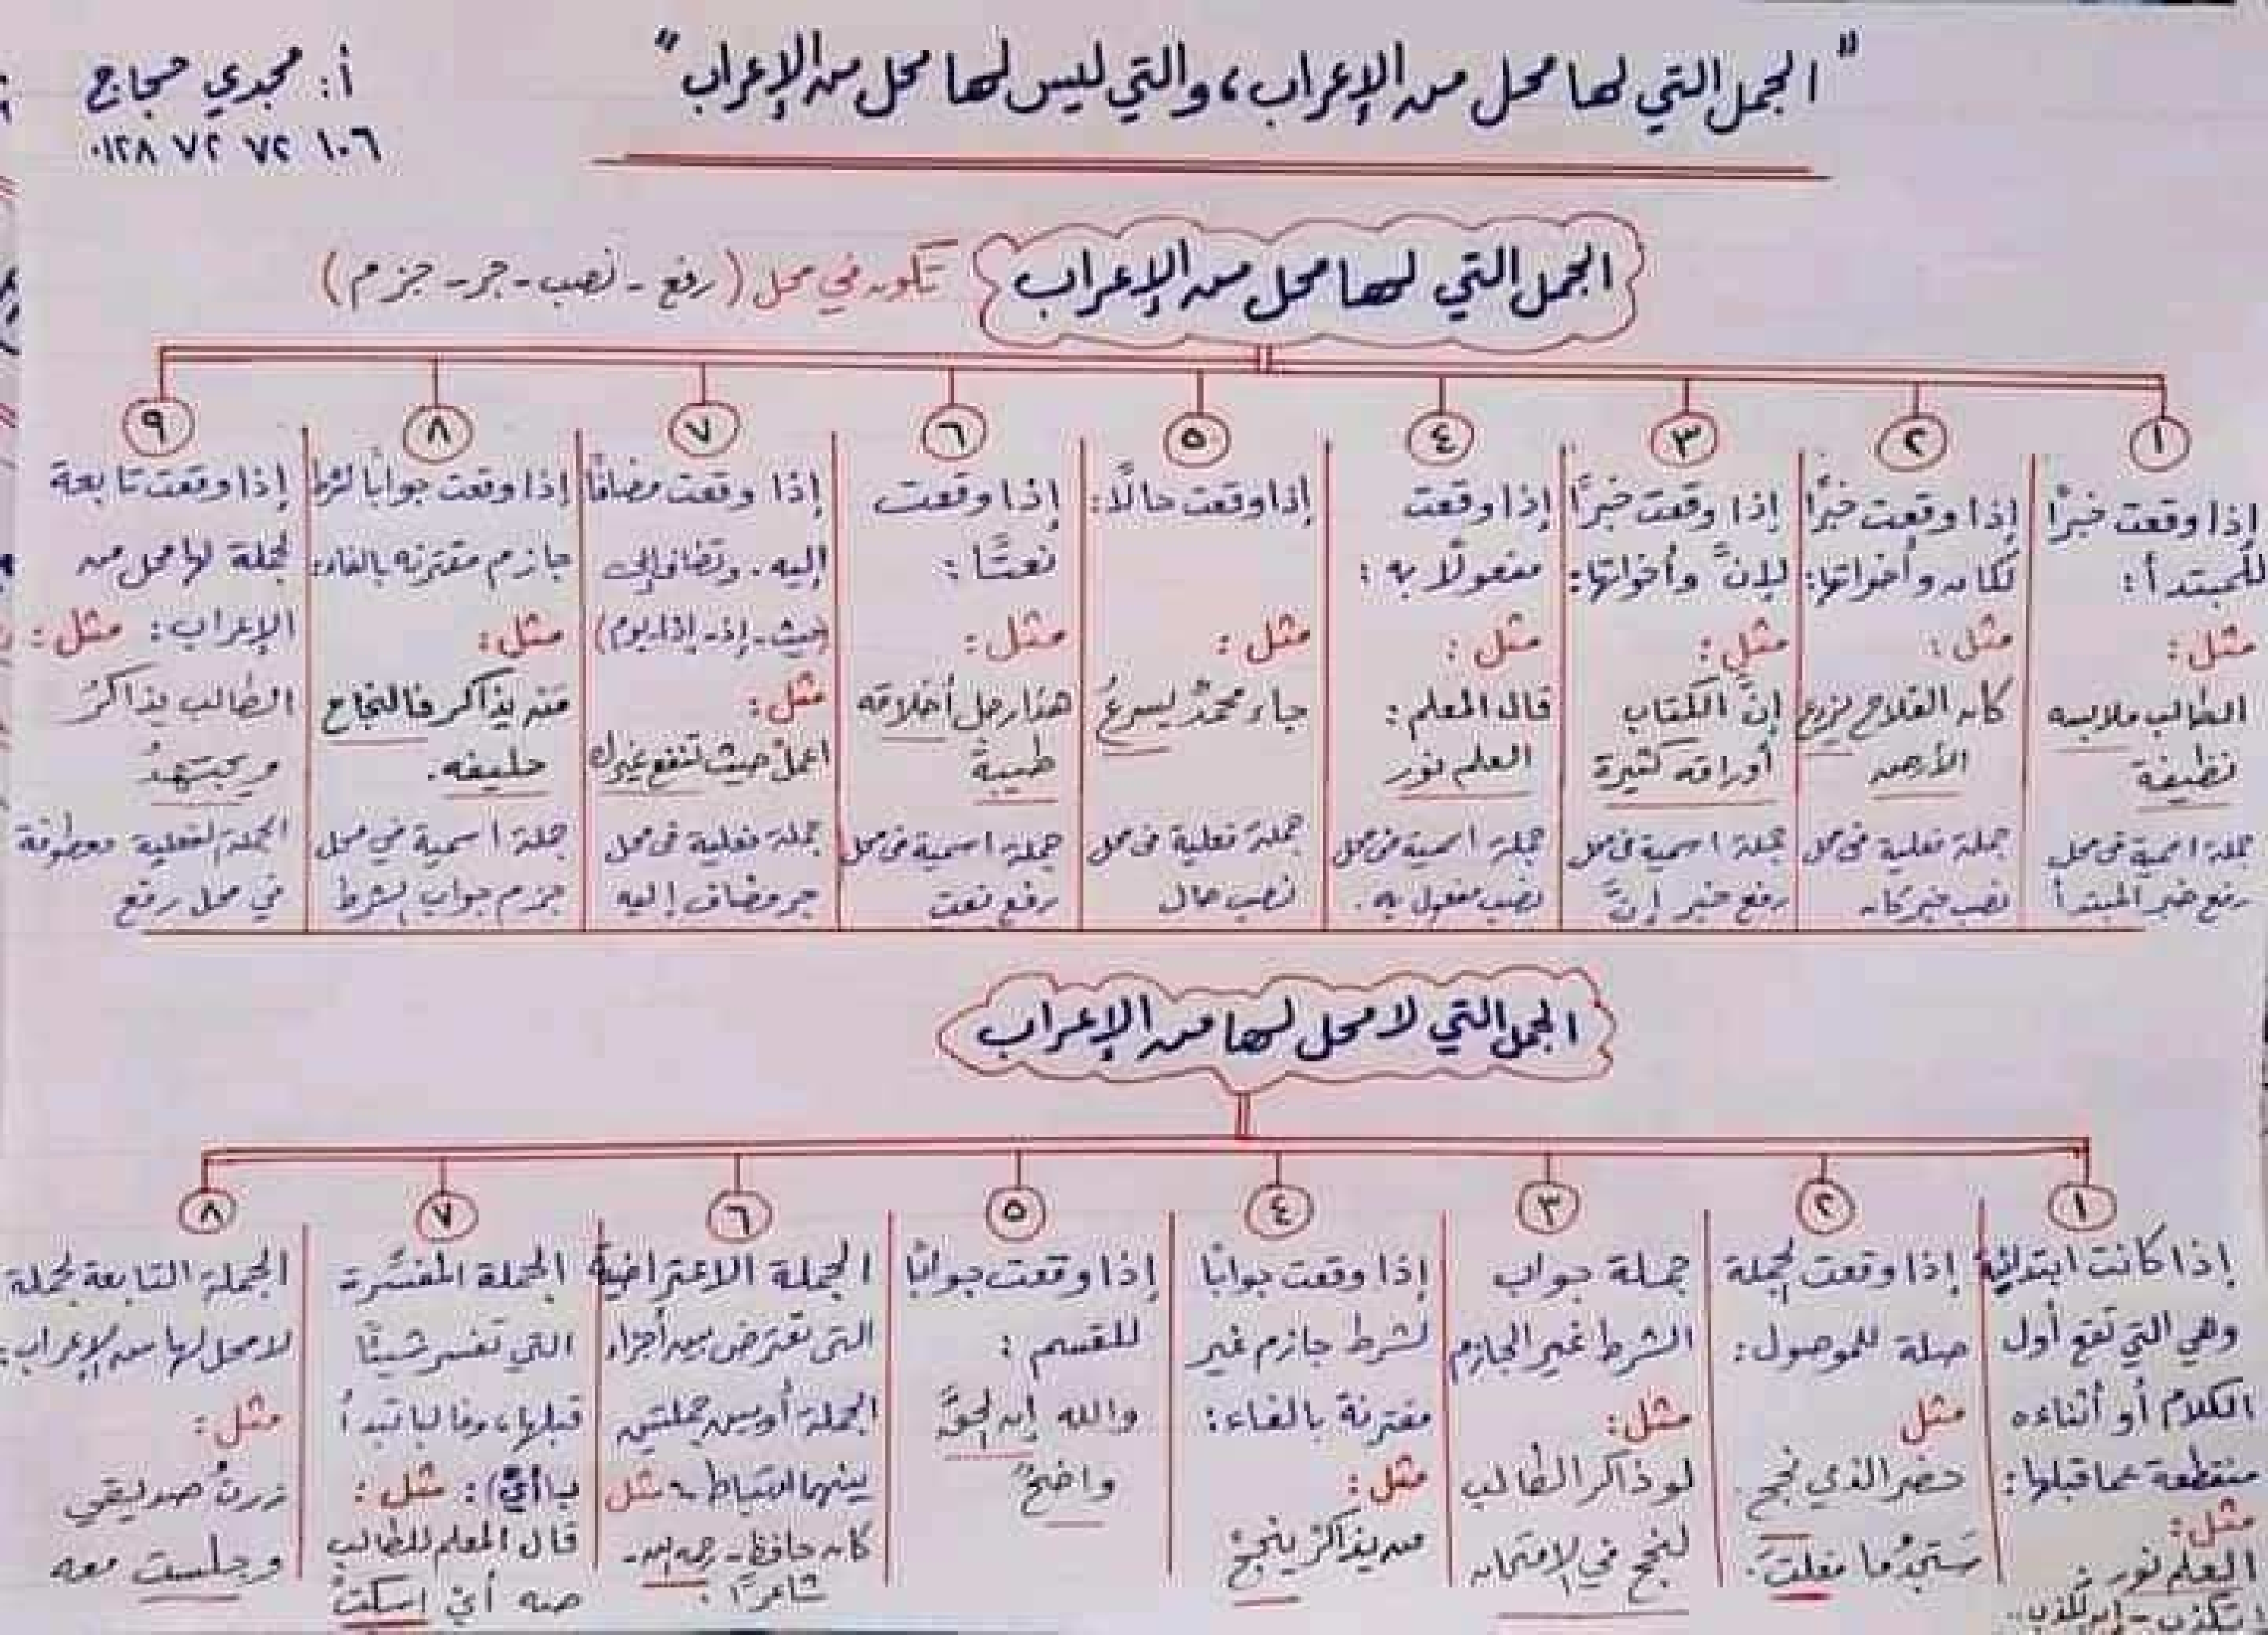 " الجمل التي لها محل من الإعراب، والتي ليس لها محل من الإعراب "
أ: مجدي حجاج
٠١٢٨ ٧٢ ٧٢ ١٠٦
الجمل التي لها محل من الإعراب
تكون في محل (رفع - نصب - جر - جزم)
١
إذا وقعت خبرًا
للمبتدأ:
مثل:
الطالب ملابسه
نظيفة
جملة اسمية في محل
رفع خبر المبتدأ
٢
إذا وقعت خبرًا
لكان وأخواتها:
مثل:
كان الفلاح يزرع
الأرض
جملة فعلية في محل
نصب خبر كان
٣
إذا وقعت خبرًا
لإنَّ وأخواتها:
مثل:
إنَّ الكتاب
أوراقه كثيرة
جملة اسمية في محل
رفع خبر إنَّ
٤
إذا وقعت
مفعولًا به:
مثل:
قال المعلم:
العلم نور
جملة اسمية في محل
نصب مفعول به.
٥
إذا وقعت حالًا:
مثل:
جاء محمدٌ يسرعُ
جملة فعلية في محل
نصب حال
٦
إذا وقعت
نعتًا:
مثل:
هذا رجل أخلاقه
طيبةٌ
جملة اسمية في محل
رفع نعت
٧
إذا وقعت مضافًا
إليه. وتضاف إلى
(حيث - إذ - إذا - يوم)
مثل:
اعملْ حيث تنفع غيرك
جملة فعلية في محل
جر مضاف إليه
٨
إذا وقعت جوابًا لشرط
جازم مقترنه بالفاء:
مثل:
من يذاكر فالنجاح
حليفه.
جملة اسمية في محل
جزم جواب الشرط
٩
إذا وقعت تابعة
لجملة لها محل من
الإعراب: مثل:
الطالب يذاكرُ
ويجتهدُ
الجملة الفعلية معطوفة
في محل رفع
الجمل التي لا محل لها من الإعراب
١
إذا كانت ابتدائية
وهي التي تقع أول
الكلام أو أثناءه
منقطعة عما قبلها:
مثل:
العلم نور.
٢
إذا وقعت لجملة
صلة للموصول:
مثل
حضر الذي نجح
ستجدُ ما فعلتَ.
٣
جملة جواب
الشرط غير الجازم
مثل:
لو ذاكر الطالب
لنجح في الامتحان
٤
إذا وقعت جوابًا
لشرط جازم غير
مقترنة بالفاء:
مثل:
من يذاكرْ ينجحْ
٥
إذا وقعت جوابًا
للقسم:
والله إن الحقَّ
واضحٌ
٦
الجملة الاعتراضية
التي تعترض بين أجزاء
الجملة أو بين جملتين
بينهما ارتباط، مثل
كان حافظ - رحمه الله -
شاعرًا.
٧
الجملة المفسِّرة
التي تفسر شيئًا
قبلها، وغالبا تبدأ
بـ(أي): مثل:
قال المعلم للطالب
صه أي اسكتْ
٨
الجملة التابعة لجملة
لا محل لها من الإعراب:
مثل:
زرتُ صديقي
وجلست معه